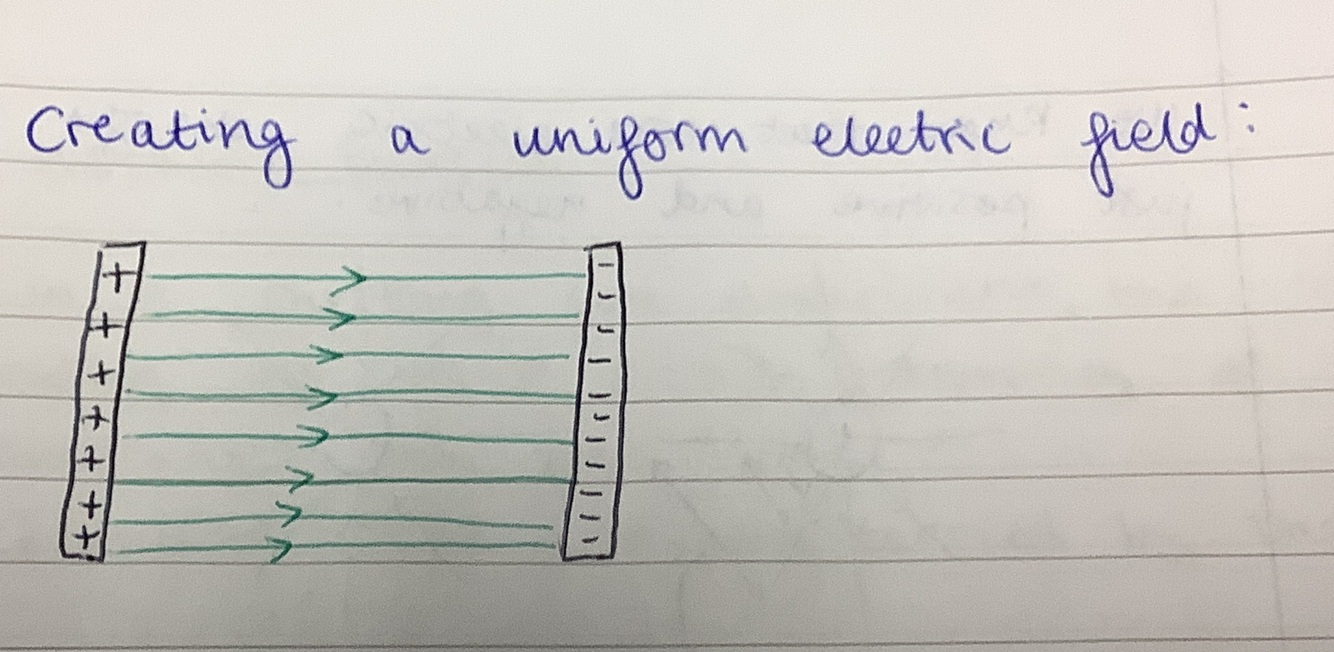 Creating a uniform electric field: